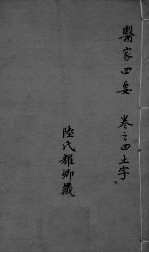 醫家四要 卷之四土字
陸氏耀卿藏